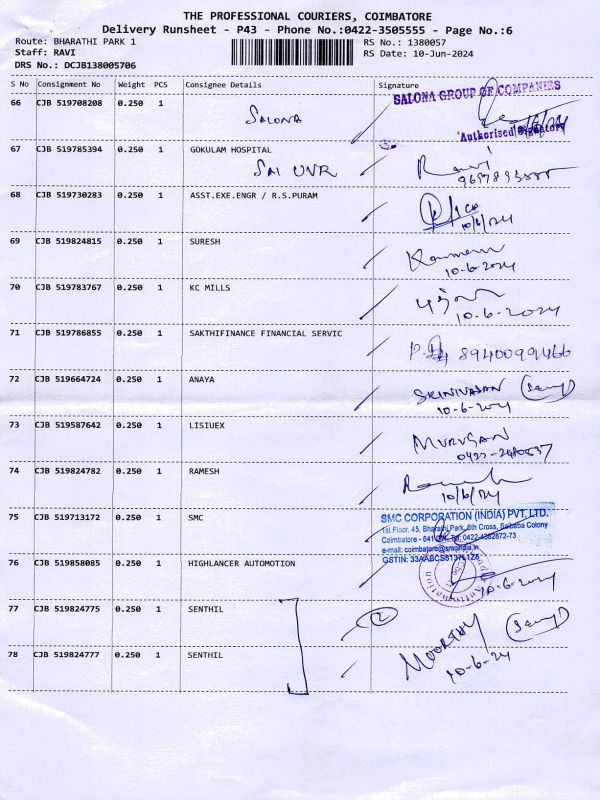 THE PROFESSIONAL COURIERS, COIMBATORE
Delivery Runsheet - P43 - Phone No.:0422-3505555 - Page No.:6
Route: BHARATHI PARK 1
RS No.: 1380057
Staff: RAVI
RS Date: 10-Jun-2024
DRS No.: DCJB138005706
S No Consignment No Weight PCS Consignee Details Signature
66 CJB 519708208 0.250 1 SALONA
SALONA GROUP OF COMPANIES
Authorised Signatory
67 CJB 519785394 0.250 1 GOKULAM HOSPITAL
SAI UNR
68 CJB 519730283 0.250 1 ASST.EXE.ENGR / R.S.PURAM
10/6/24
69 CJB 519824815 0.250 1 SURESH
10-6-2024
70 CJB 519783767 0.250 1 KC MILLS
10-6-2024
71 CJB 519786855 0.250 1 SAKTHIFINANCE FINANCIAL SERVIC
72 CJB 519664724 0.250 1 ANAYA
SRINIVASAN
10-6-2024
73 CJB 519587642 0.250 1 LISIUEX
MURUGAN
74 CJB 519824782 0.250 1 RAMESH
10/6/24
75 CJB 519713172 0.250 1 SMC
SMC CORPORATION (INDIA) PVT. LTD.
1st Floor, 45, Bharathi Park, 6th Cross, Saibaba Colony
Coimbatore - 641 Tel: 0422-4382872-73
e-mail: coimbatore@smcindia.in
76 CJB 519858085 0.250 1 HIGHLANCER AUTOMOTION
10-6-2024
77 CJB 519824775 0.250 1 SENTHIL
2
78 CJB 519824777 0.250 1 SENTHIL
MOORTHY
10-6-24